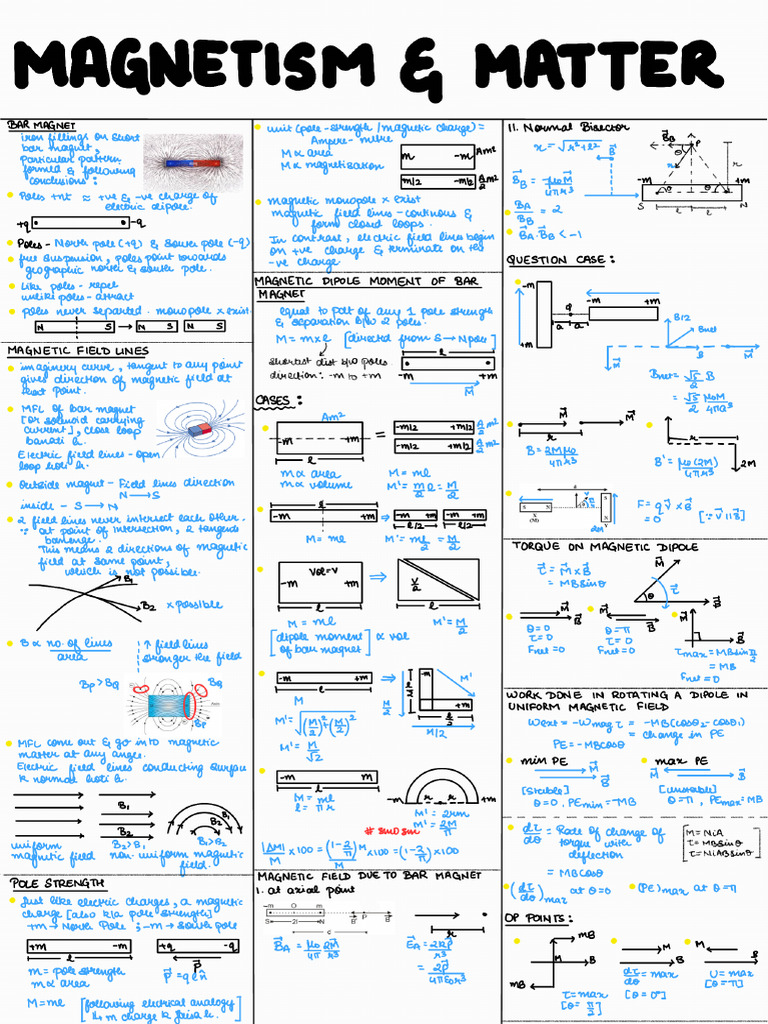 MAGNETISM & MATTER
BAR MAGNET
iron fillings on short
bar magnet,
particular pattern
formed & following
conclusions:
Poles +nt ≈ +ve & -ve charge of
electric dipole.
+q -q
Poles - North pole (+q) & South pole (-q)
free suspension, poles point towards
geographic north & south pole.
Like poles - repel
unlike poles - attract
poles never separated. monopole x exist
N S → N S N S
MAGNETIC FIELD LINES
imaginery curve, tangent to any point
gives direction of magnetic field at
that point.
MFL of bar magnet
[or solenoid carrying
current], close loop
banati h.
Electric field lines - open
loop hoti h.
Outside magnet - Field lines direction
N → S
inside - S → N
2 field lines never intersect each other.
∵ at point of intersection, 2 tangents
banenge.
This means 2 directions of magnetic
field at same point,
which is not possible.
B1
B2 x possible
B ∝ no. of lines
area
↑ field lines
stronger the field
BP > BQ
BQ
BP
MFL come out & go into magnetic
matter at any angle.
Electric field lines conducting surface
k normal hoti h.
B1
B2
B1
B2
uniform
magnetic field
B2 > B1
B1 > B2
non-uniform magnetic
field.
POLE STRENGTH
Just like electric charges, a magnetic
charge [also k/a pole strength]
+m → North Pole ; -m → South pole
+m -m
l
+q -q
P
m = pole strength
m ∝ area
P = q l n̂
M = ml
[following electrical analogy
m charge k
unit (pole-strength / magnetic charge) =
Ampere-metre
M ∝ area
M ∝ magnetisation
m -m Am²
m/2 -m/2 A/2 m²
magnetic monopole x exist
magnetic field lines - continous &
form closed loops.
In contrast, electric field lines begin
on +ve charge & terminate on the
-ve charge
MAGNETIC DIPOLE MOMENT OF BAR
MAGNET
equal to pdt of any 1 pole strength
& separation b/w 2 poles.
M = m x l [directed from S → N pole]
shortest dist b/w poles
direction :- -m to +m
l
-m +m
M
CASES :
Am²
-m +m = -m/2 +m/2 A/2 m²
-m/2 +m/2
l
m ∝ area
m ∝ volume
M = ml
M' = m/2 l = M/2
l
-m +m ⇒ -m +m -m +m
l/2 l/2
M = ml
M' = ml/2 = M/2
Vol = V
-m +m ⇒ V/2
l
M = ml
[dipole moment
of bar magnet] ∝ vol
M' = M/2
-m +m ⇒
l
M
M' = √((M/2)² + (M/2)²)
M' = M/√2
-m
M/2
l/2
M'
+m
l/2
M/2
-m +m
l
M = ml
l = πr
-m +m
M' = 2rm
M' = 2M/π
|ΔM|/M x 100 = (1-2/π)M/M x 100 = (1-2/π) x 100
MAGNETIC FIELD DUE TO BAR MAGNET
1. at axial point
-m O m
S 2l N P B
r
BA = μo/4π 2M/r³
r
EA = 2kP/r³
= 2P/4πεor³
11. Normal Bisector
x = √(r² + l²)
BB
BB = -μoM/4πr³
BA/BB = 2
BA·BB < -1
BB P
θ
r
-m +m
S N
l l
QUESTION CASE :
-m
+m
Q
a a
-m +m
B/2
Bnet
B
M
M
Bnet = √5/2 B
= √5/2 μoM/4πa³
M M
r
B = 2Mμo/4πr³
r
2M
B' = μo(2M)/4πr³
2M
F = q V x B
= 0 [∵ V ∥ B]
TORQUE ON MAGNETIC DIPOLE
τ = M x B
= MB sinθ
M
θ
τ
B
M
B
θ = 0
τ = 0
Fnet = 0
M
B
θ = π
τ = 0
Fnet = 0
M
B
τmax = MB sin π/2
= MB
Fnet = 0
WORK DONE IN ROTATING A DIPOLE IN
UNIFORM MAGNETIC FIELD
Wext = -Wmag τ = -MB(cosθ2 - cosθ1)
= change in PE
PE = -MB cosθ
min PE
M
B
[stable]
θ = 0, PEmin = -MB
max PE
M
B
[unstable]
θ = π, PEmax = MB
dτ/dθ = Rate of change of
torque with
deflection
= MB cosθ
M = NiA
τ = MB sinθ
τ = NiAB sinθ
(dτ/dθ)max at θ = 0
(PE)max at θ = π
OP POINTS :
mB
M B
mB
τ = max
M
B
dτ/dθ = max
[θ = 0°]
M
B
U = max
[θ = π]